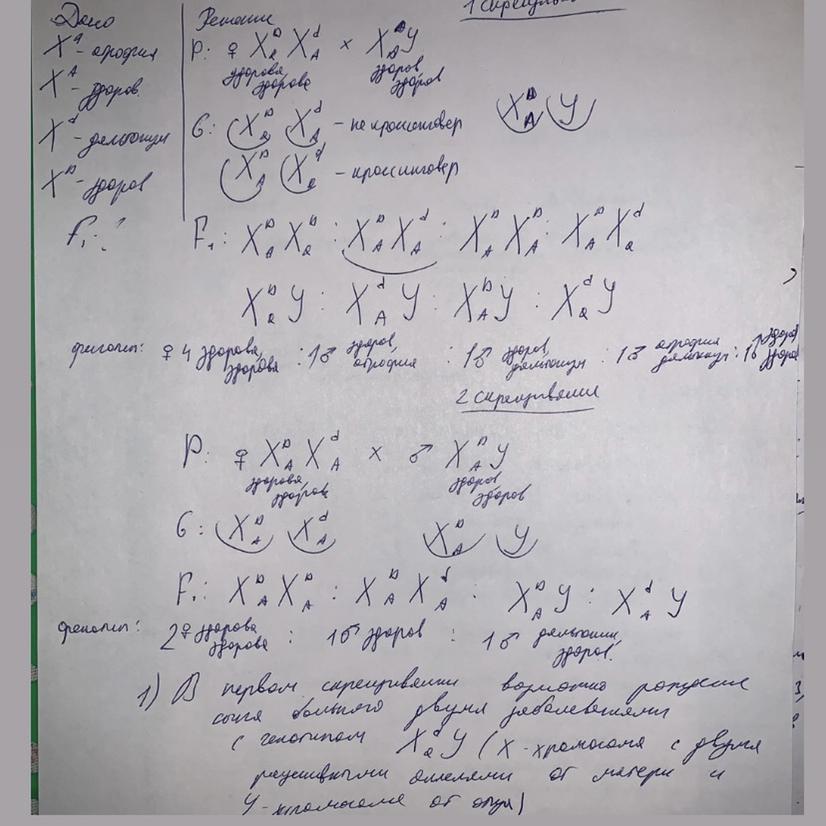 1 скрещ
Дано
Решение
Xᵃ - атрофия
Xᴬ - здоров.
Xᵈ - дальтонизм
Xᴰ - здоров
F₁ - ?
P: ♀ XᴰₐXᵈ_A × Xᴰ_AY
здорова здоров
здорова здоров
G: Xᴰₐ Xᵈ_A - не кроссинговер Xᴰ_A Y
Xᴰ_A Xᵈₐ - кроссинговер
F₁: Xᴰ_AXᴰₐ : Xᴰ_AXᵈ_A : Xᴰ_AXᴰ_A : Xᴰ_AXᵈₐ
XᴰₐY : Xᵈ_AY : Xᴰ_AY : XᵈₐY
фенотип: ♀ 4 здорова, здорова : 1♂ здоров, атрофия : 1♂ здоров, дальтонизм : 1♂ атрофия дальтонизм : 1♂ здоров, здоров
2 скрещивание
P: ♀ Xᴰ_AXᵈ_A × ♂ Xᴰ_AY
здорова здоров
здорова здоров
G: Xᴰ_A Xᵈ_A Xᴰ_A Y
F₁: Xᴰ_AXᴰ_A : Xᴰ_AXᵈ_A : Xᴰ_AY : Xᵈ_AY
фенотип: 2♀ здорова здорова : 1♂ здоров : 1♂ дальтоник, здоров.
1) В первом скрещивании возможно рождение
сына больного двумя заболеваниями
с генотипом XᵈₐY (X-хромосома с двумя
рецессивными аллелями от матери и
Y-хромосома от отца)